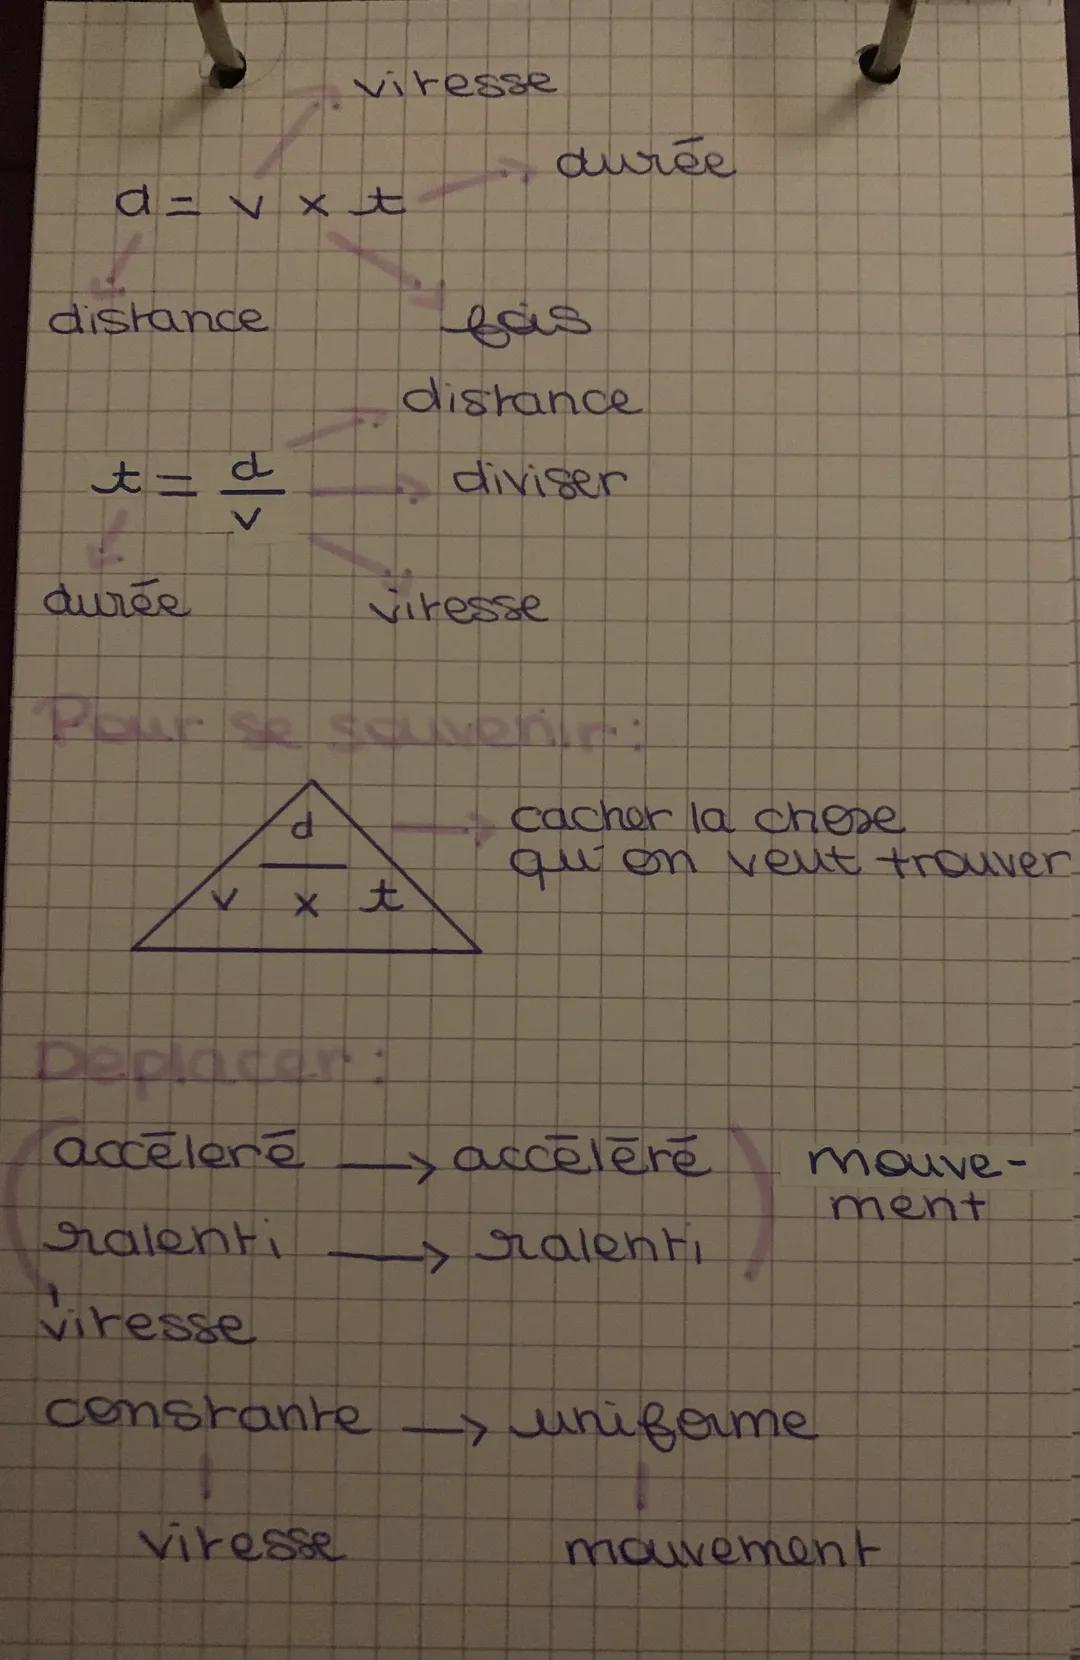 vitesse
durée
d = v x t
distance
fois
distance
t = d/v
diviser
durée
vitesse
Pour se souvenir :
d
v x t
cacher la chose
qu'on veut trouver
Deplacer :
accéleré → accéléré
mouve-
ment
ralenti → ralenti
vitesse
constante → uniforme
vitesse
mouvement